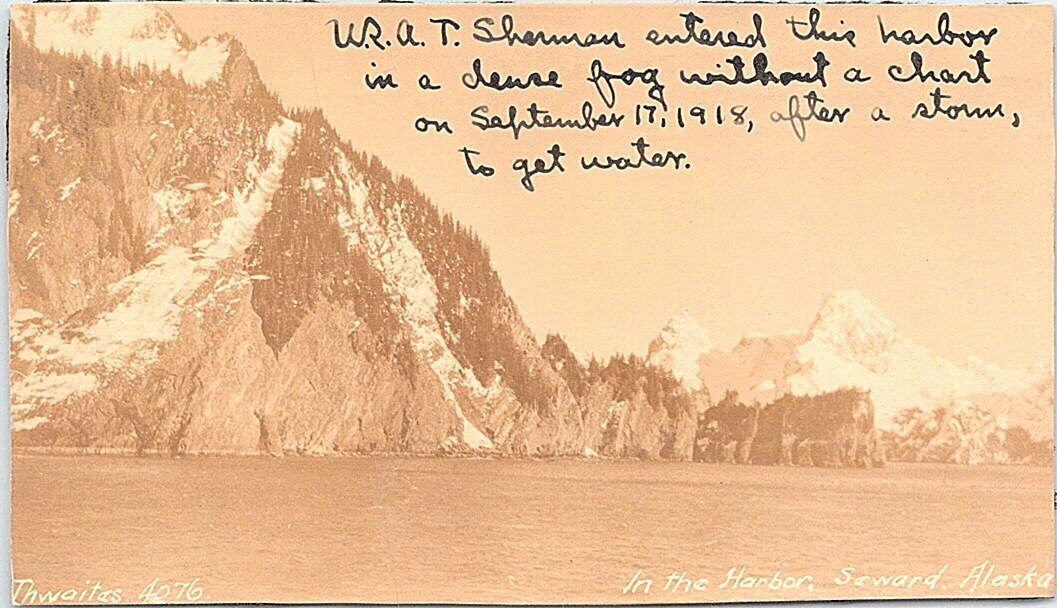 U.S.A.T. Sherman entered this harbor
in a dense fog without a chart
on September 17, 1918, after a storm,
to get water.
Thwaites 4076.
In the Harbor, Seward. Alaska